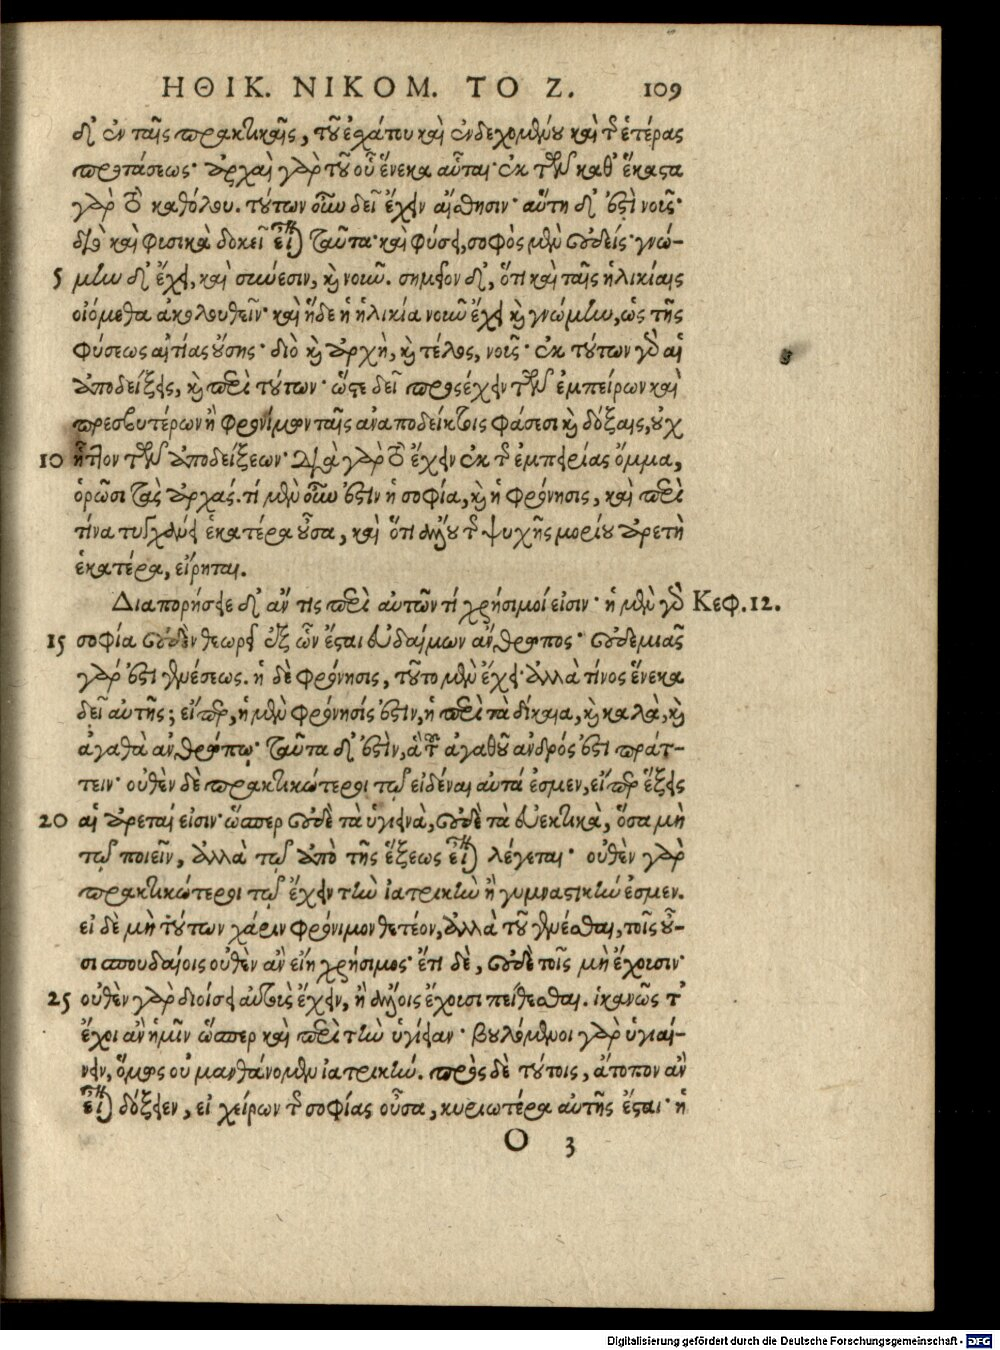 ΗΘΙΚ. ΝΙΚΟΜ. ΤΟ Ζ. 109
δ' ἐν ταῖς πρακτικαῖς, τοῦ ἐσχάτου καὶ ἐνδεχομένου καὶ τῆς ἑτέρας
προτάσεως· ἀρχαὶ γὰρ τοῦ οὗ ἕνεκα αὗται· ἐκ τῶν καθ' ἕκαστα
γὰρ τὸ καθόλου. τούτων οὖν δεῖ ἔχειν αἴσθησιν· αὕτη δ' ἐστὶ νοῦς·
διὸ καὶ φυσικὰ δοκεῖ εἶναι ταῦτα· καὶ φύσει, σοφὸς μὲν οὐδείς· γνώ-
5 μην δ' ἔχει, καὶ σύνεσιν, καὶ νοῦν. σημεῖον δ', ὅτι καὶ ταῖς ἡλικίαις
οἰόμεθα ἀκολουθεῖν· καὶ ἥδε ἡ ἡλικία νοῦν ἔχει καὶ γνώμην, ὡς τῆς
φύσεως αἰτίας οὔσης· διὸ καὶ ἀρχὴ, καὶ τέλος, νοῦς· ἐκ τούτων γὰρ αἱ
ἀποδείξεις, καὶ περὶ τούτων· ὥστε δεῖ προσέχειν τῶν ἐμπείρων καὶ
πρεσβυτέρων ἢ φρονίμων ταῖς ἀναποδείκτοις φάσεσι καὶ δόξαις, οὐχ
10 ἧττον τῶν ἀποδείξεων· διὰ γὰρ τὸ ἔχειν ἐκ τῆς ἐμπειρίας ὄμμα,
ὁρῶσι τὰς ἀρχάς. τί μὲν οὖν ἐστὶν ἡ σοφία, καὶ ἡ φρόνησις, καὶ περὶ
τίνα τυγχάνει ἑκατέρα οὖσα, καὶ ὅτι ἄλλου τῆς ψυχῆς μορίου ἀρετὴ
ἑκατέρα, εἴρηται.
Διαπορήσειε δ' ἄν τις περὶ αὐτῶν τί χρήσιμοί εἰσιν· ἡ μὲν γὰρ Κεφ. 12.
15 σοφία οὐδὲν θεωρεῖ ἐξ ὧν ἔσται εὐδαίμων ἄνθρωπος· οὐδεμιᾶς
γάρ ἐστι γενέσεως. ἡ δὲ φρόνησις, τοῦτο μὲν ἔχει· ἀλλὰ τίνος ἕνεκα
δεῖ αὐτῆς; εἴπερ, ἡ μὲν φρόνησίς ἐστιν, ἡ περὶ τὰ δίκαια, καὶ καλὰ, καὶ
ἀγαθὰ ἀνθρώπῳ· ταῦτα δ' ἐστὶν, ἃ τοῦ ἀγαθοῦ ἀνδρός ἐστι πράτ-
τειν· οὐθὲν δὲ πρακτικώτεροι τῷ εἰδέναι αὐτά ἐσμεν, εἴπερ ἕξεις
20 αἱ ἀρεταί εἰσιν· ὥσπερ οὐδὲ τὰ ὑγιεινὰ, οὐδὲ τὰ εὐεκτικὰ, ὅσα μὴ
τῷ ποιεῖν, ἀλλὰ τῷ ἀπὸ τῆς ἕξεως εἶναι λέγεται· οὐθὲν γὰρ
πρακτικώτεροι τῷ ἔχειν τὴν ἰατρικὴν ἢ γυμναστικὴν ἐσμεν.
εἰ δὲ μὴ τούτων χάριν φρόνιμον θετέον, ἀλλὰ τοῦ γενέσθαι, τοῖς οὖ-
σι σπουδαίοις οὐθὲν ἂν εἴη χρήσιμος· ἔτι δὲ, οὐδὲ τοῖς μὴ ἔχουσιν·
25 οὐθὲν γὰρ διοίσει αὐτοὺς ἔχειν, ἢ ἄλλοις ἔχουσι πείθεσθαι. ἱκανῶς τ'
ἔχοι ἂν ἡμῖν ὥσπερ καὶ περὶ τὴν ὑγίειαν· βουλόμενοι γὰρ ὑγιαί-
νειν, ὅμως οὐ μανθάνομεν ἰατρικήν. πρὸς δὲ τούτοις, ἄτοπον ἂν
εἶναι δόξειεν, εἰ χείρων τῆς σοφίας οὖσα, κυριωτέρα αὐτῆς ἔσται· ἡ
O 3
Digitalisierung gefördert durch die Deutsche Forschungsgemeinschaft - DFG